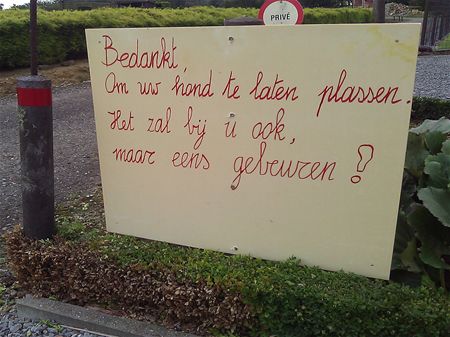 PRIVÉ
Bedankt,
Om uw hond te laten plassen.
Het zal bij u ook,
maar eens gebeuren!